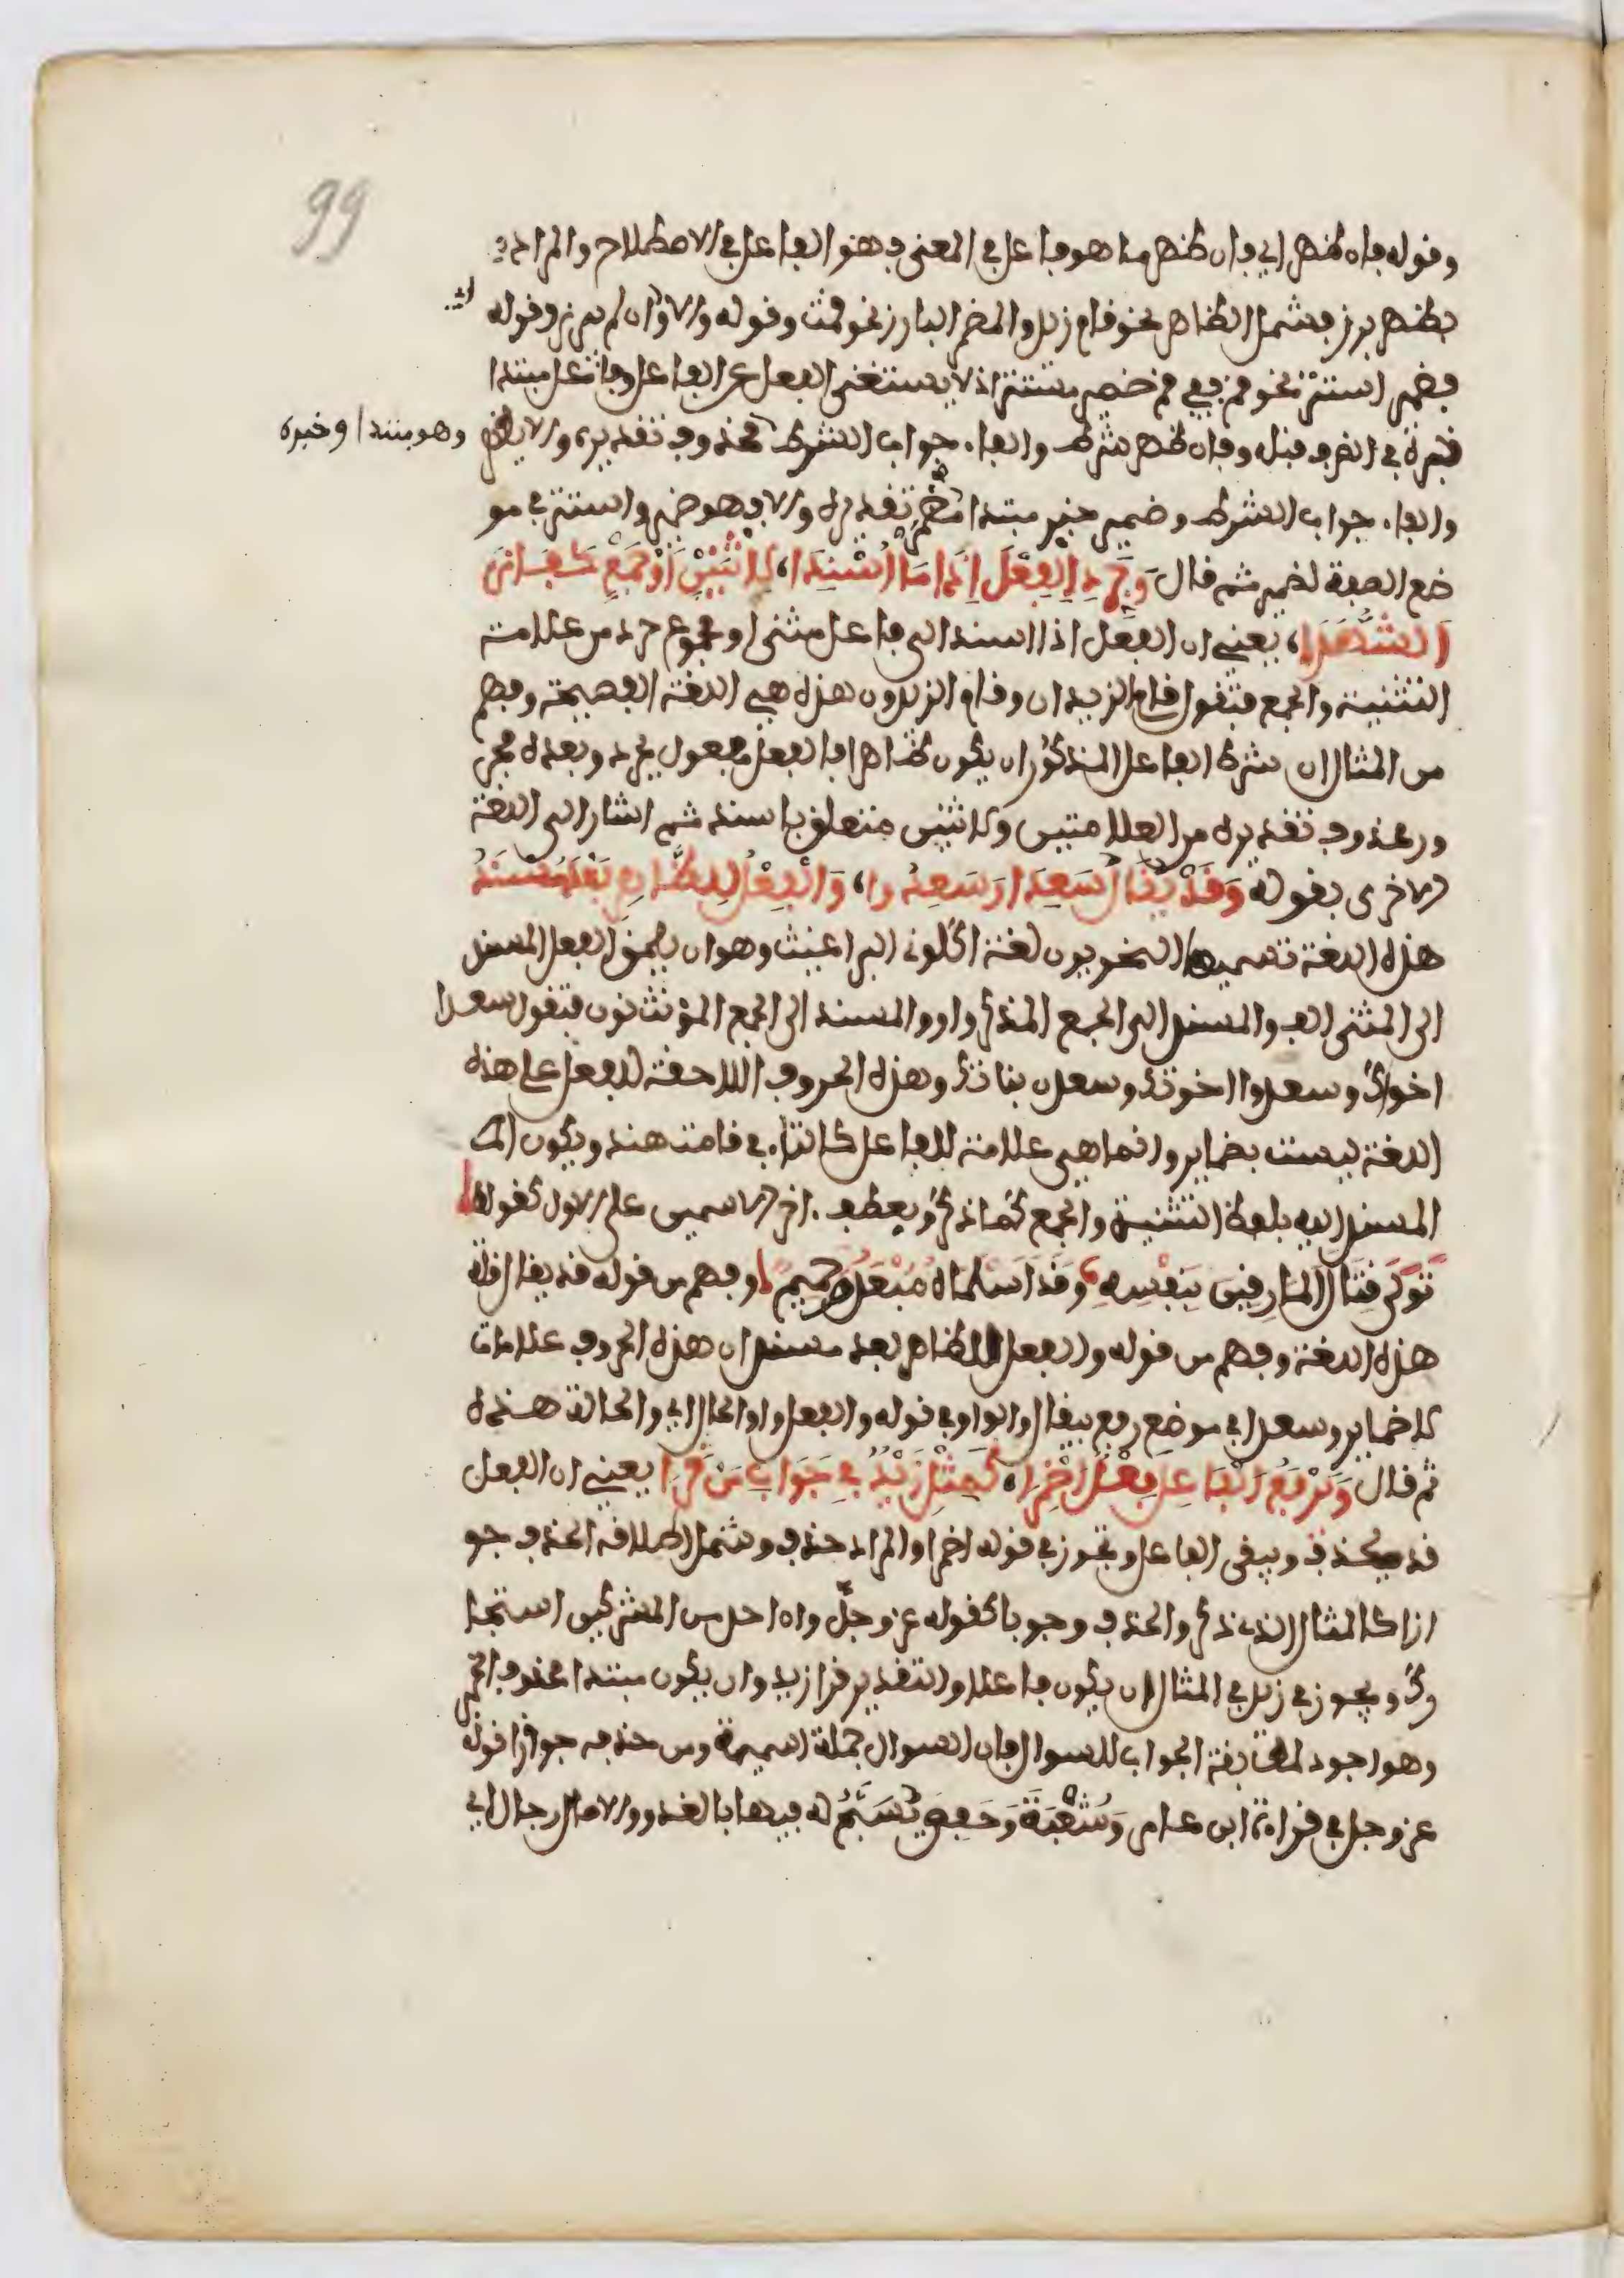 99
وقوله فان ظهر اي فان ظهر ما هو فاعل في المعنى فهو الفاعل في الاصطلاح والمراد
بظهر برز فيشمل الظاهر نحو قام زيد والمضمر البارز نحو قمت وقوله والا اي وان لم يبرز وقوله
فضمير استتر نحو قم ففي قم ضمير مستتر اذ لا يستغنى الفعل عن الفاعل وفاعل مبتدا
خبره في الظرف قبله وفان ظهر شرط والفاء جواب الشرط محذوف تقديره والا يظهر وهو مبتدا وخبره
والفاء جواب الشرط وضمير خبر مبتدا مضمر تقديره والا فهو ضمير واستتر في مو
ضع الصفة لضمير ثم قال وَجَرِّدِ الْفِعْلَ إِذَا مَا أُسْنِدَا، لِاثْنَيْنِ أَوْ جَمْعٍ كَفَازَ
الشُّهَدَا، يعني ان الفعل اذا اسند الى فاعل مثنى او مجموع جرد من علامة
التثنية والجمع فتقول قام الزيدان وقام الزيدون هذه هي اللغة الفصيحة وفهم
من المثال ان شرط الفاعل المذكور ان يكون ظاهرا فالفعل مفعول بجرد وبعده مجر
ور محذوف تقديره من العلامتين ولاثنين متعلق باسند ثم اشار الى اللغة
الاخرى بقوله وَقَدْ يُقَالُ سَعِدَا وَسَعِدُوا، وَالْفِعْلُ لِلظَّاهِرِ بَعْدُ مُسْنَدُ
هذه اللغة تسميها النحويون لغة اكلوني البراغيث وهو ان يلحق الفعل المسند
الى المثنى الف والمسند الى الجمع المذكر واو والمسند الى الجمع المؤنث نون فتقول سعدا
اخواك وسعدوا اخوتك وسعدن بناتك وهذه الحروف اللاحقة للفعل على هذه
اللغة ليست بضماير وانما هي علامة للفاعل كالتاء في قامت هند ويكون
المسند اليه بلفظ التثنية والجمع كما ذكر ويعطف اخر الاسمين على الاول كقوله
تَوَلَّى قِتَالَ الْمَارِقِينَ بِنَفْسِهِ، وَقَدْ أَسْلَمَاهُ مُبْعَدٌ وَحَمِيمٌ، وفهم من قوله قد يقال قلة
هذه اللغة وفهم من قوله والفعل للظاهر بعد مسند ان هذه الحروف علامات
لا ضماير وسعدا في موضع رفع بيقال والواو في قوله والفعل واو الحال اي والحالة هذه
ثم قال وَيَرْفَعُ الْفَاعِلَ فِعْلٌ أُضْمِرَا، كَمِثْلِ زَيْدٌ فِي جَوَابِ مَنْ قَرَا يعني ان الفعل
قد يحذف ويبقى الفاعل وتجوز في قوله اضمرا والمراد حذف وشمل اطلاقه الحذف جو
ازا كالمثال الذي ذكر والحذف وجوبا كقوله عز وجل وان احد من المشركين استجا
رك ويجوز في زيد في المثال ان يكون فاعلا والتقدير قرا زيد وان يكون مبتدا محذوف الخبر
وهو اجود لمطابقة الجواب للسوال فان السوال جملة اسمية ومن حذفه جوازا قوله
عز وجل في قراءة ابن عامر وَشُعْبَة وَحَفِص يُسَبَّحُ له فيها بالغدو والاصال رجال اي